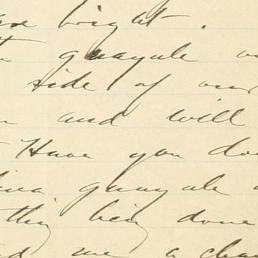 bright.
guayule
side of our
and will
Have you do
guayule
thing being done
me a cha